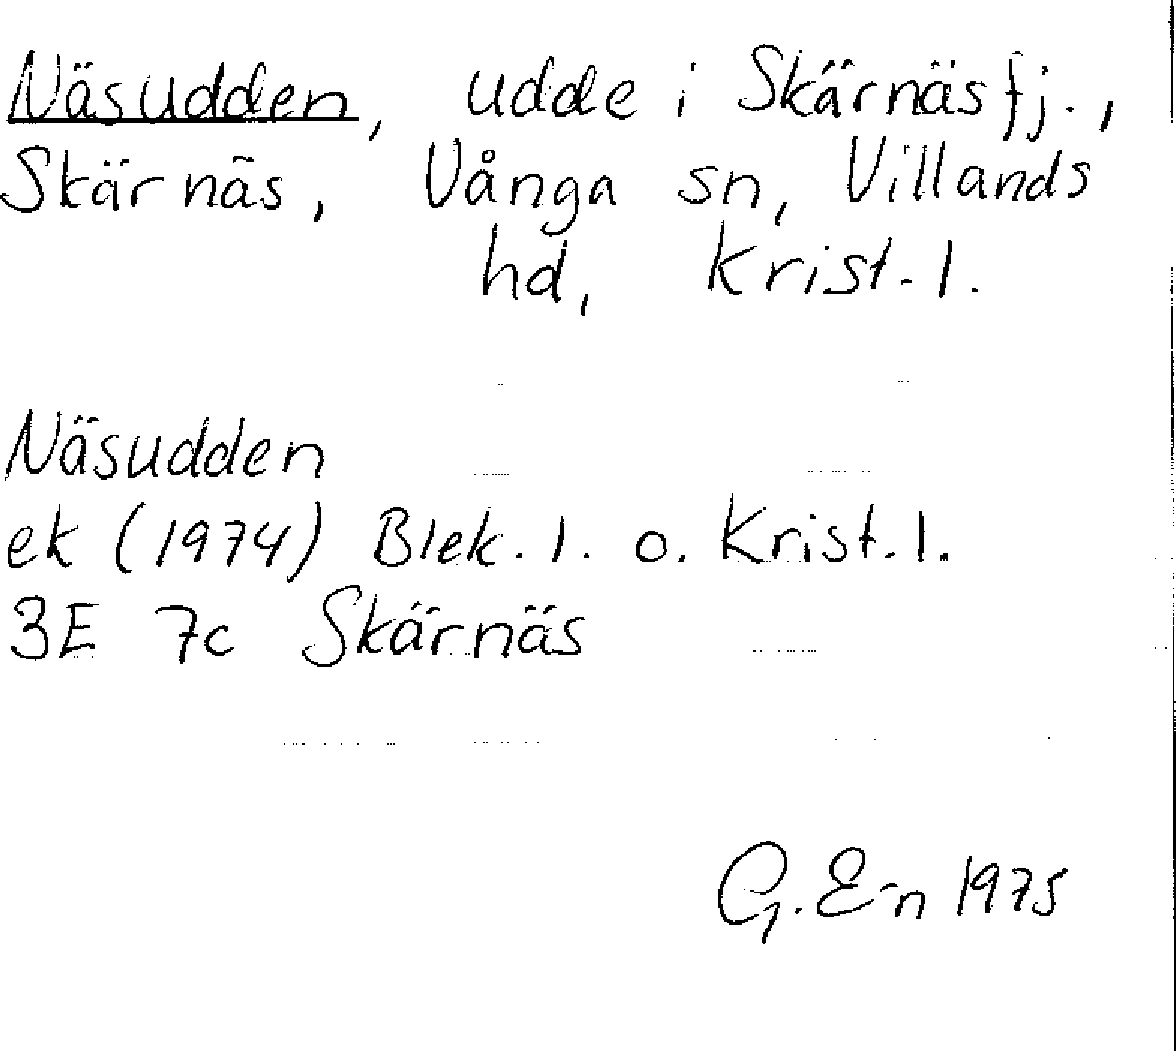 Näsudden, udde i Skärnäsfj.,
Skärnäs, Vånga sn, Villands
hd, Krist.l.
Näsudden
ek (1974) Blek.l. o. Krist.l.
3E 7c Skärnäs
G. E-n 1975